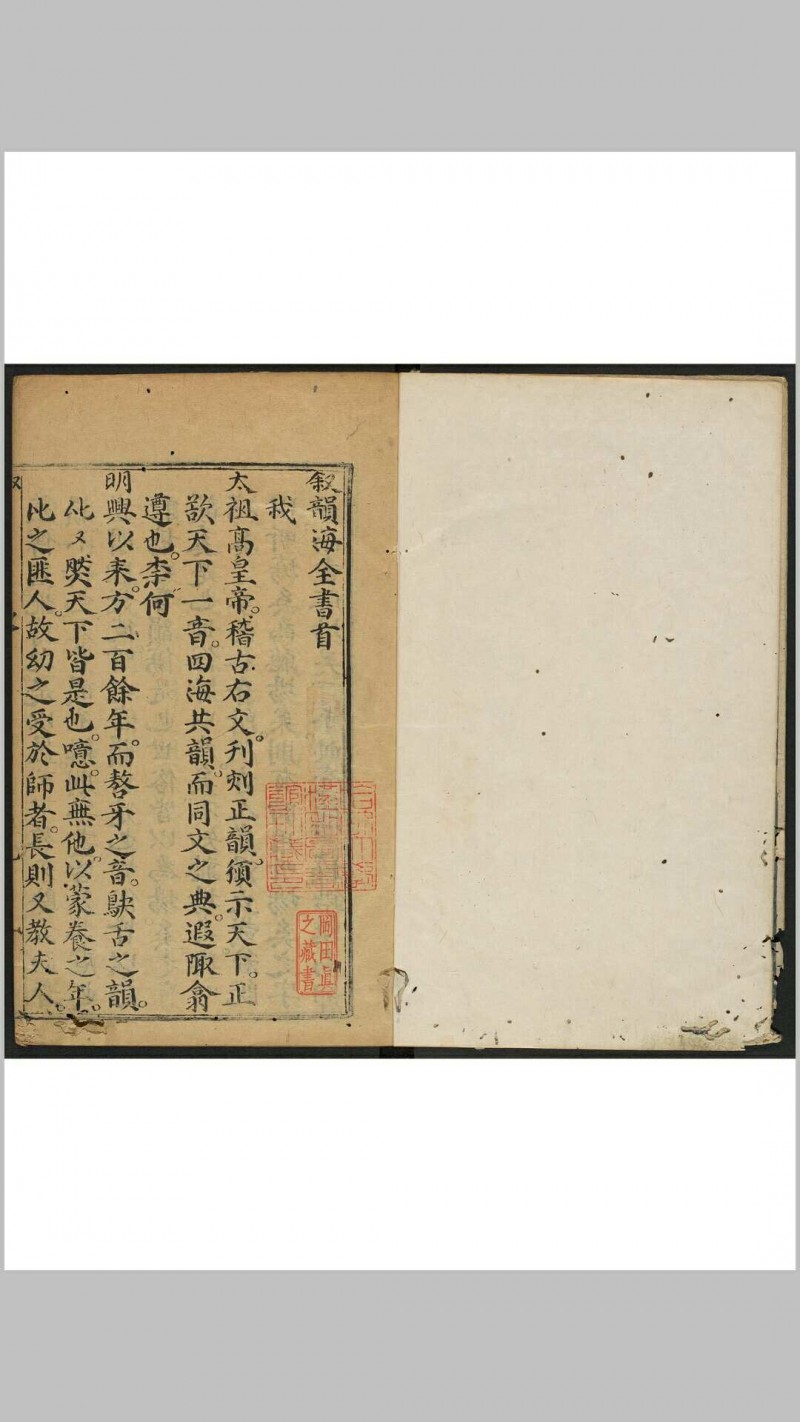 叙韻海全書首
我
太祖高皇帝稽古右文刋刻正韻頒示天下正
欲天下一音四海共韻而同文之典遐陬翕
遵也柰何
明興以来方二百餘年而聱牙之音鴃舌之韻
比ヌ㷼天下皆是也噫此無他以蒙養之年
比之匪人故幼之受於師者長則又教夫人
岡田眞
之藏書